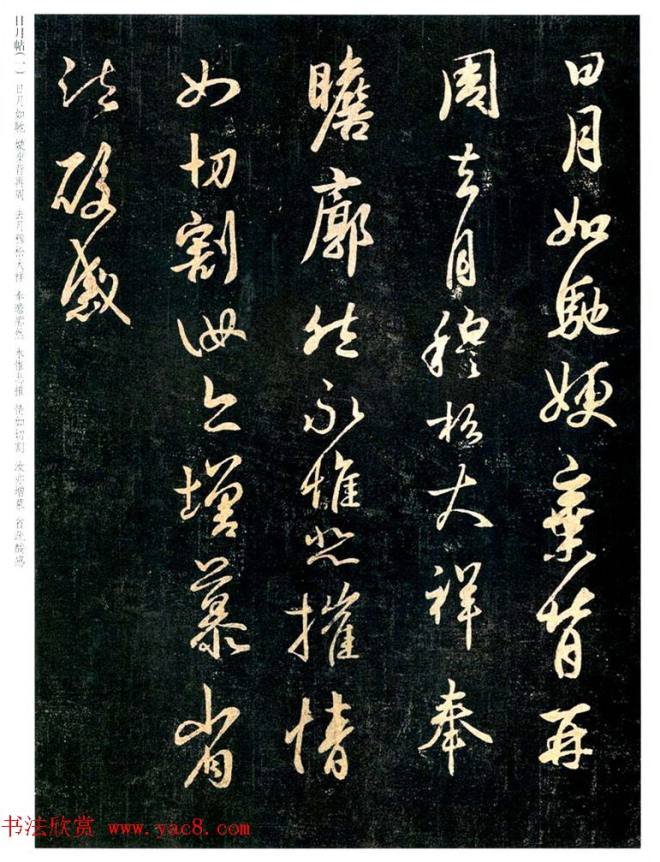 日月如馳嫂棄背再
周去月穆松大祥奉
瞻廓然永惟悲摧情
如切割汝亦增慕省
疏酸感
日月帖(一) 日月如馳 嫂棄背再周 去月穆松大祥 奉瞻廓然 永惟悲摧 情如切割 汝亦增慕 省疏酸感
书法欣赏 www.yac8.com